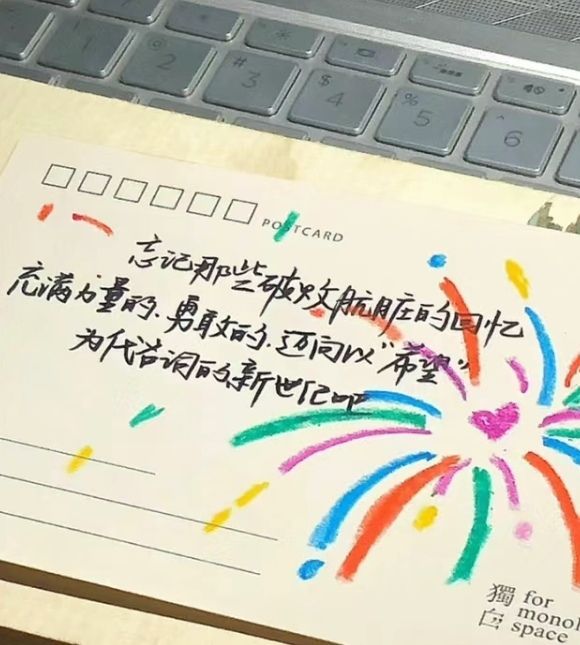 1
2
#
3
$
4
%
5
^
6
POSTCARD
忘记那些破败肮脏的回忆
充满力量的、勇敢的、迈向以“希望”
为代名词的新世纪吧
獨 for
白 monol
space